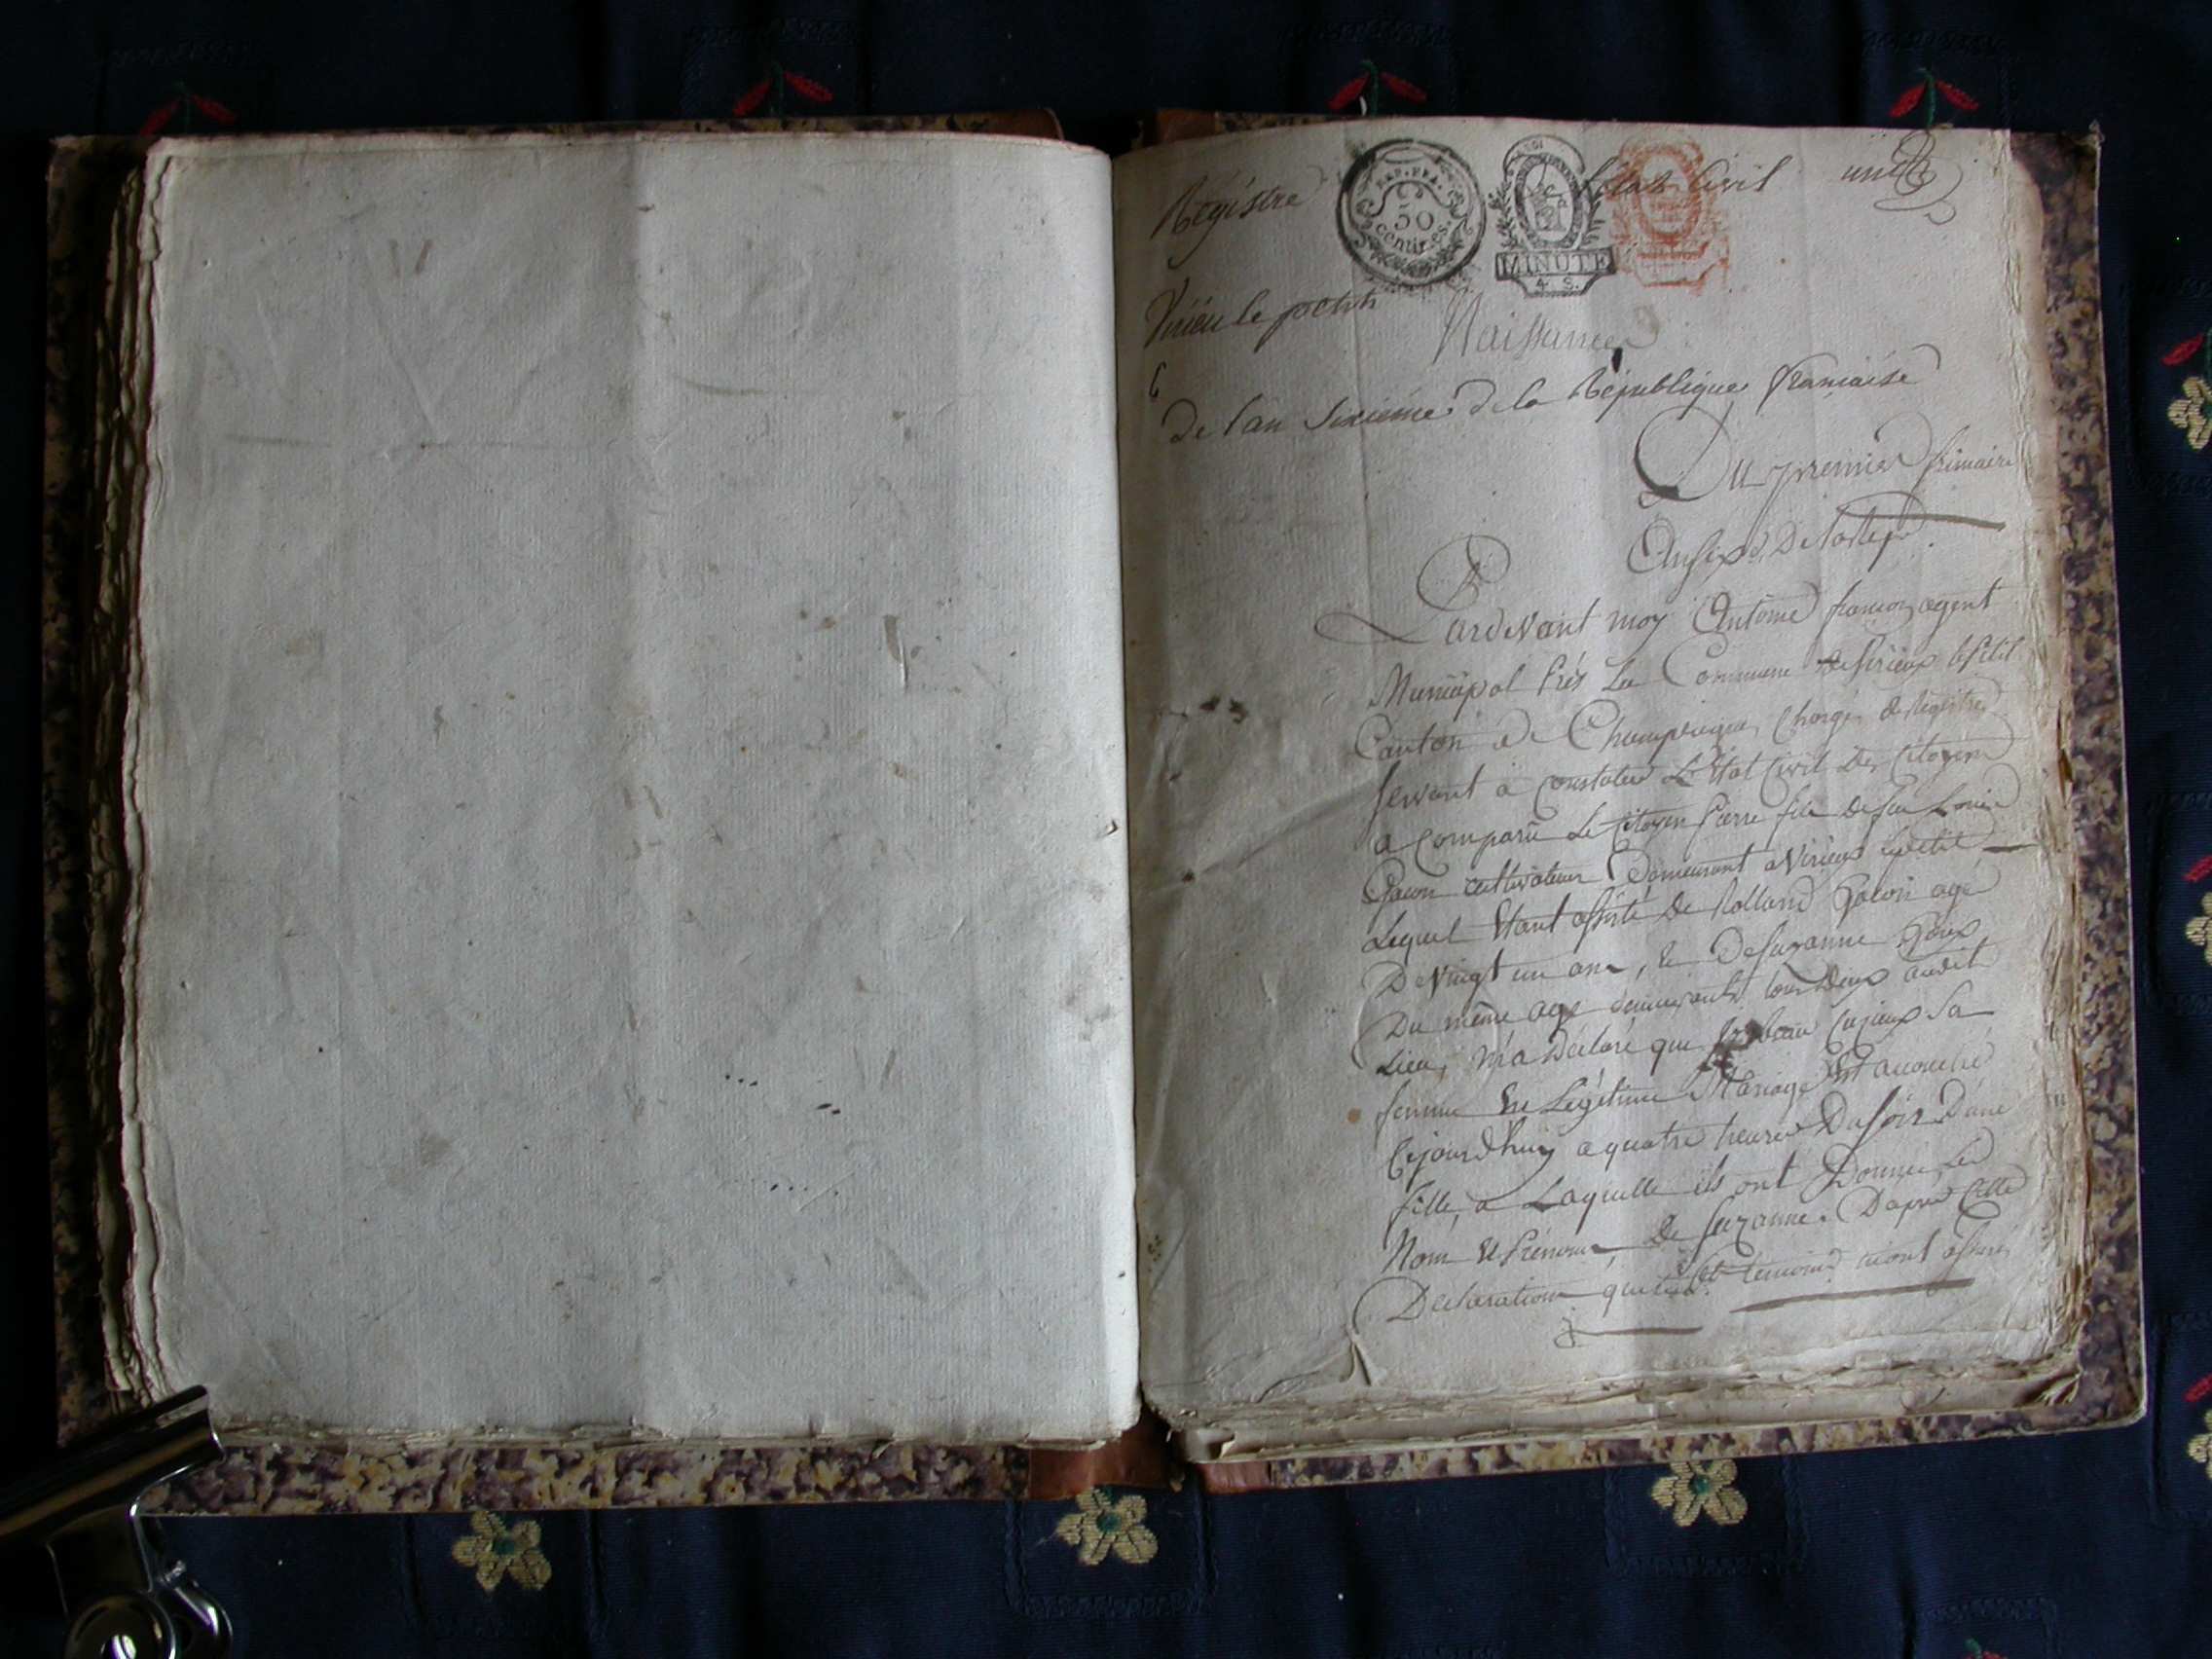 Régistre
Létat Civil
REP. FRA.
50
centimes.
MINUTE
4. S.
Virieu le petit
Naissances
De l'an Sixième de la République française
Du premier frimaire
An six De la Rep
Pardevant moy Antoine françon agent
Municipal Près La Commune de Virieux le Petit
Canton De Champagne, Chargé de Régistre
Servant à Constater L'Etat Civil Des Citoyens
a Comparu Le Citoyen Pierre fils De feu Louis
cultivateur Demeurant a Virieux Le petit
Lequel Etant assisté De Rolland agé
De Vingt un ans, & De Suzanne
Du même age demeurants tous deux audit
Lieu, m'a Déclaré que Cujeux Sa
femme En Légitime Mariage Est accouché
Cejourdhuy a quatre heures Du soir D'une
fille, a Laquelle ils ont Donné Les
Nom Et Prénoms De Suzanne. D'apres Cette
Declaration que les témoins m'ont